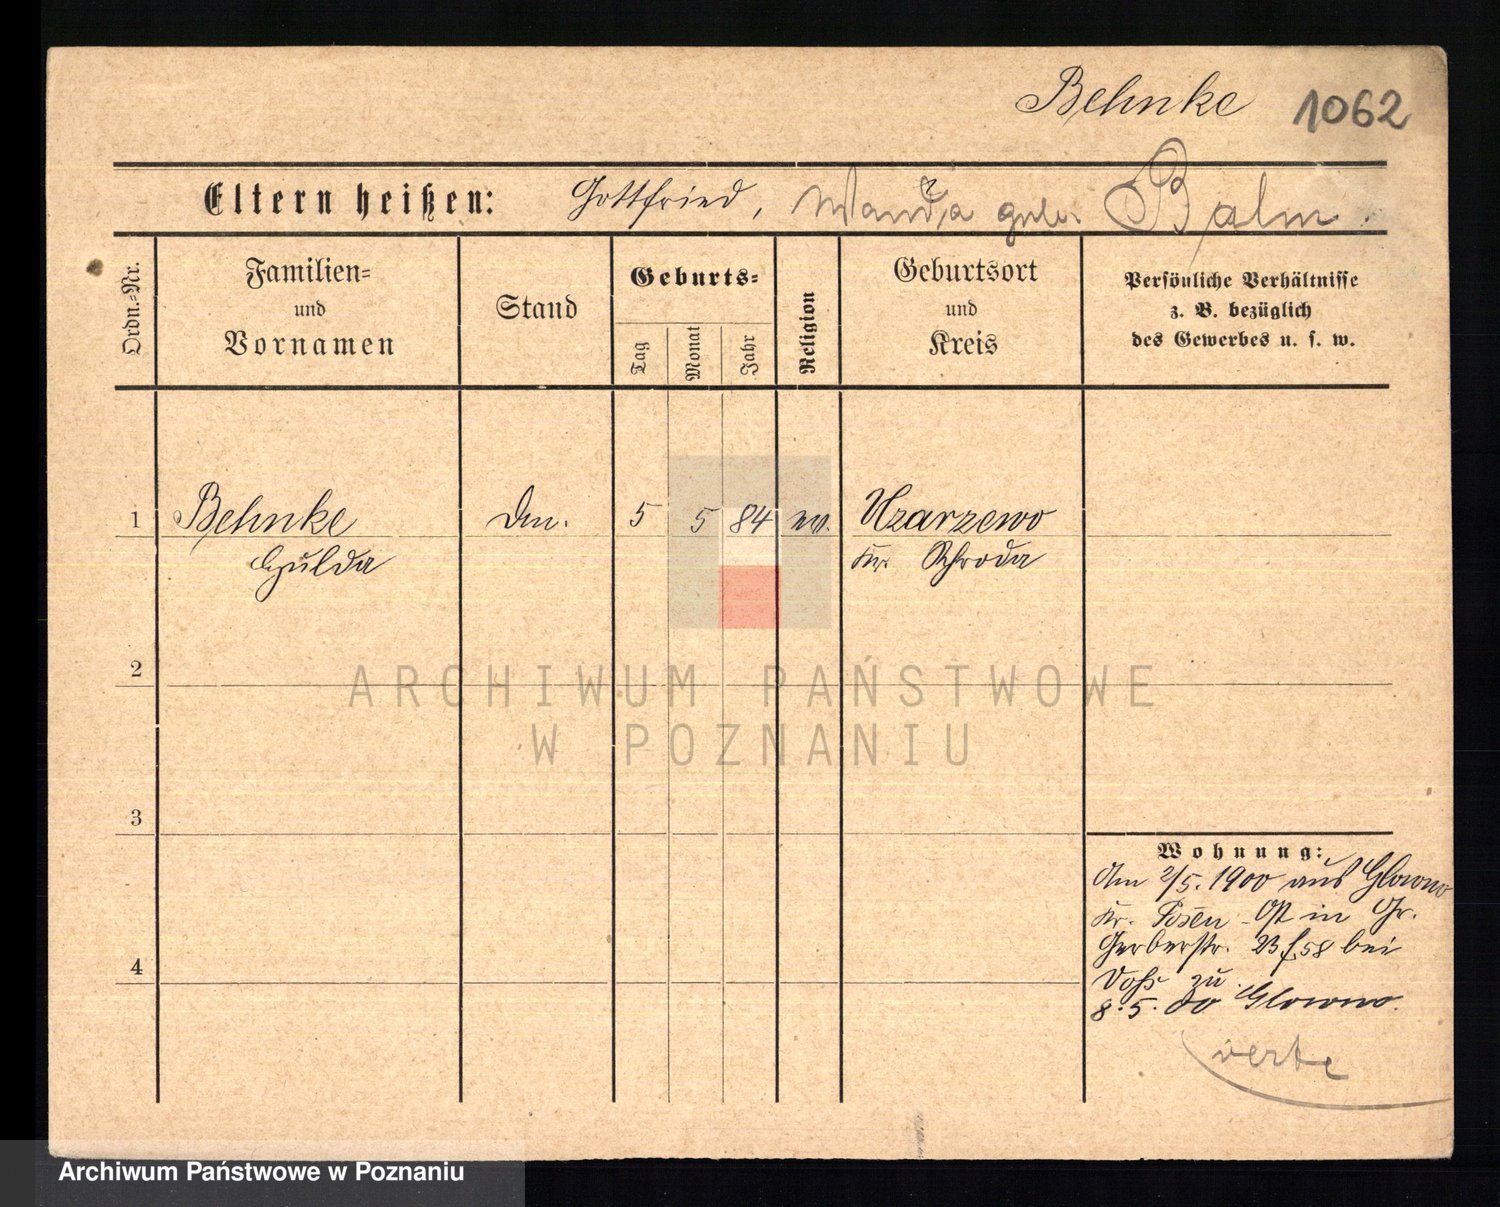 Behnke 1062
Eltern heißen: Gottfried, Wanda geb. Balm.
Ordn.-Nr.
Familien-
und
Vornamen
Stand
Geburts-
Tag
Monat
Jahr
Religion
Geburtsort
und
Kreis
Persönliche Verhältnisse
z. B. bezüglich
des Gewerbes u. s. w.
1 Behnke 5 5 84 ev. Uzarzewo
Hulda Kr. Schroda
2
3
4
Wohnung:
Am 2/5. 1900 aus Glowno
Kr. Posen-Ost in Gr.
Gerberstr. 23 f. 58 bei
Voß zu.
8.5. do Glowno.
verte
ARCHIWUM PAŃSTWOWE
W POZNANIU
Archiwum Państwowe w Poznaniu